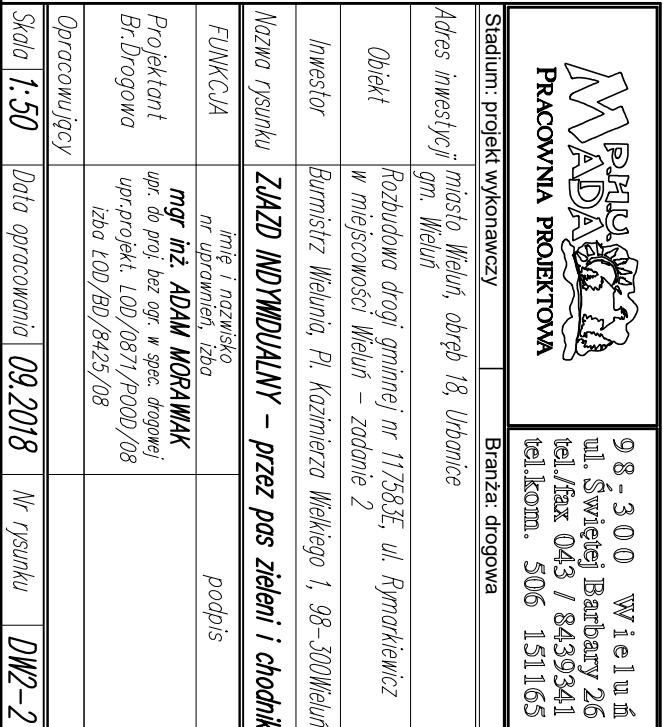 P.H.U.
MADA
PRACOWNIA PROJEKTOWA
98-300 Wieluń
ul. Świętej Barbary 26
tel./fax 043 / 8439341
tel.kom. 506 151165
Stadium: projekt wykonawczy
Branża: drogowa
Adres inwestycji
miasto Wieluń, obręb 18, Urbanice
gm. Wieluń
Obiekt
Rozbudowa drogi gminnej nr 117583E, ul. Rymarkiewicz
w miejscowości Wieluń - zadanie 2
Inwestor
Burmistrz Wielunia, Pl. Kazimierza Wielkiego 1, 98-300Wieluń
Nazwa rysunku
ZJAZD INDYWIDUALNY - przez pas zieleni i chodnik
FUNKCJA
imię i nazwisko
nr uprawnień, izba
podpis
Projektant
Br.Drogowa
mgr inż. ADAM MORAWIAK
upr. do proj. bez ogr. w spec. drogowej
upr.projekt. LOD/0871/POOD/08
izba ŁOD/BD/8425/08
Opracowujący
Skala 1:50 Data opracowania 09.2018 Nr rysunku DW2-2